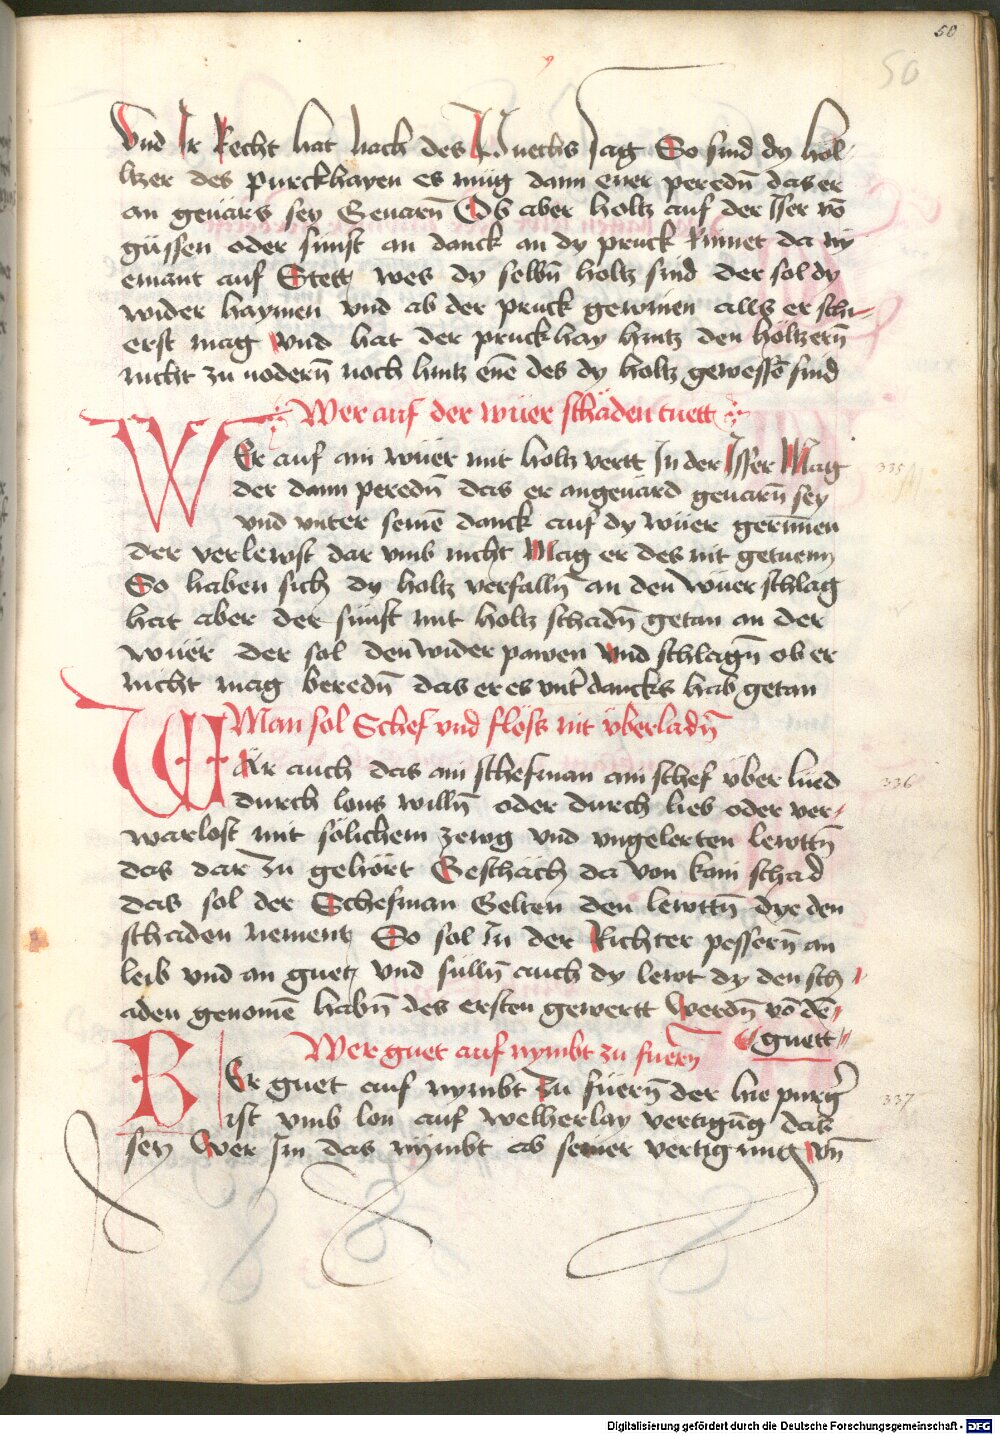 50
50
Vnd Ir Recht hat nach des Puechs sag So sind dy höl-
tzer des purckhayen es müg dann ener peredn̄ das er
an geuärs sey Geuarn̄ Ob aber holtz auf der Iser vō
güssen oder sunst an danck an dy pruck rinnet da ny
emant auf Stett wes dy selbn̄ holtz sind der sol dy
wider haymen vnd ab der pruck gewinen allß er schi-
erst mag vnd hat der pruckhay hintz den höltzern̄
nicht zu uodern̄ noch hintz enē des dy holtz gewessē sind
Wer auf der wüer schäden tuett
WEr auf ain wüer mit holtz vertt In der Isser Mag
der dann peredn̄ das er angeuärd geuarn̄ sey
vnd vnter seinē danck auf dy wüer gerūnen
der verlewst dar vmb nicht Mag er des nit getuenn
So haben sich dy holtz verfalln̄ an den wüerschlag
hat aber der sünst mit holtz schadn̄ getan an der
wüer der sol den wider pawen vnd schlagn̄ ob er
nicht mag beredn̄ das er es vnt' dancks hab getan
Man sol Schef vnd flöss nit überladn̄
WÄr auch das ain schefman ain schef über lüed
durch lons willn̄ oder durch lieb oder ver-
warlost mit sölichem zewg vnd vngelerten lewttn̄
das dar zu gehört Geschäch da von kain schad
das sol der Schefman Gelten den lewttn̄ dye den
schaden nement So sol In der Richter pessern̄ an
leib vnd an guet vnd sülln̄ auch dy lewt dy den sch
aden genomē habn̄ des ersten gewertt werdn̄ vō dē
guett
Wer guet auf nymbt zu fuern̄
BEr guet auf nymbt zu füern̄ der hie purg'
ist vmb lon auf welherlay vertigūg das
sey Wer Im das nymbt ab seiner vertigung vn̄
335
336
337
Digitalisierung gefördert durch die Deutsche Forschungsgemeinschaft - DFG